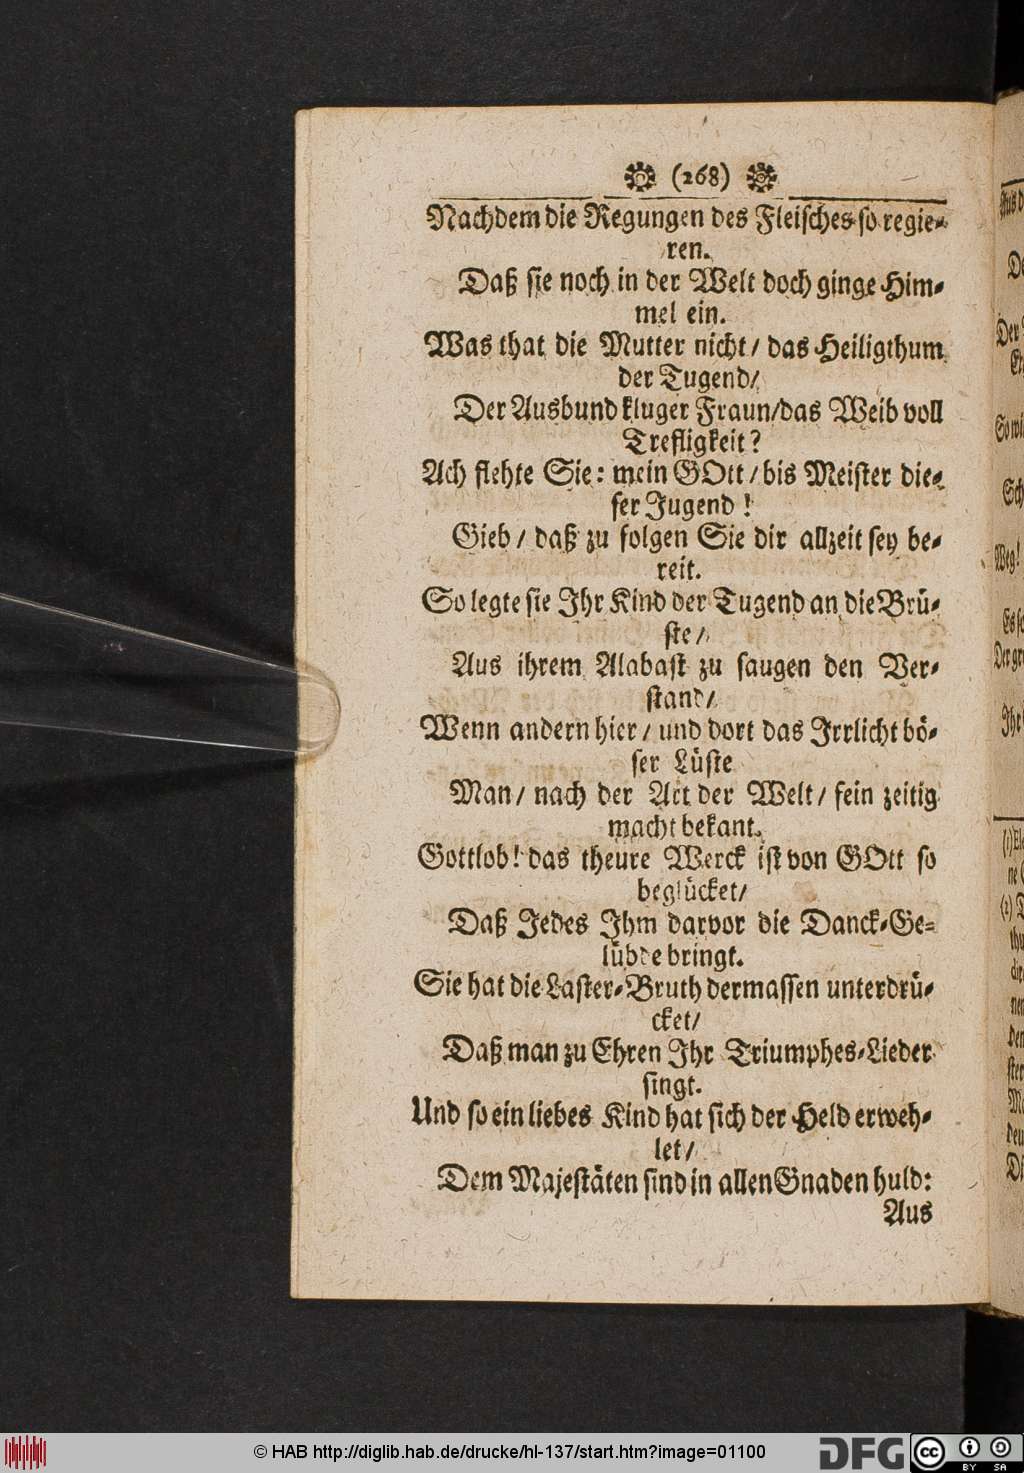 (268)
Nachdem die Regungen des Fleisches so regie-
ren.
Daß sie noch in der Welt doch ginge Him-
mel ein.
Was that die Mutter nicht/ das Heiligthum
der Tugend/
Der Ausbund kluger Fraun/das Weib voll
Trefligkeit?
Ach flehte Sie: mein GOtt/ bis Meister die-
ser Jugend!
Gieb/ daß zu folgen Sie dir allzeit sey be-
reit.
So legte sie Ihr Kind der Tugend an die Brü-
ste/
Aus ihrem Alabast zu saugen den Ver-
stand/
Wenn andern hier/ und dort das Irrlicht bö-
ser Lüste
Man/ nach der Art der Welt/ fein zeitig
macht bekant.
Gottlob! das theure Werck ist von GOtt so
beglücket/
Daß Jedes Ihm darvor die Danck-Ge-
lübde bringt.
Sie hat die Laster-Bruth dermassen unterdrü-
cket/
Daß man zu Ehren Ihr Triumphes-Lieder
singt.
Und so ein liebes Kind hat sich der Held erweh-
let/
Dem Majestäten sind in allen Gnaden huld:
Aus
© HAB http://diglib.hab.de/drucke/hl-137/start.htm?image=01100
DFG
cc BY SA